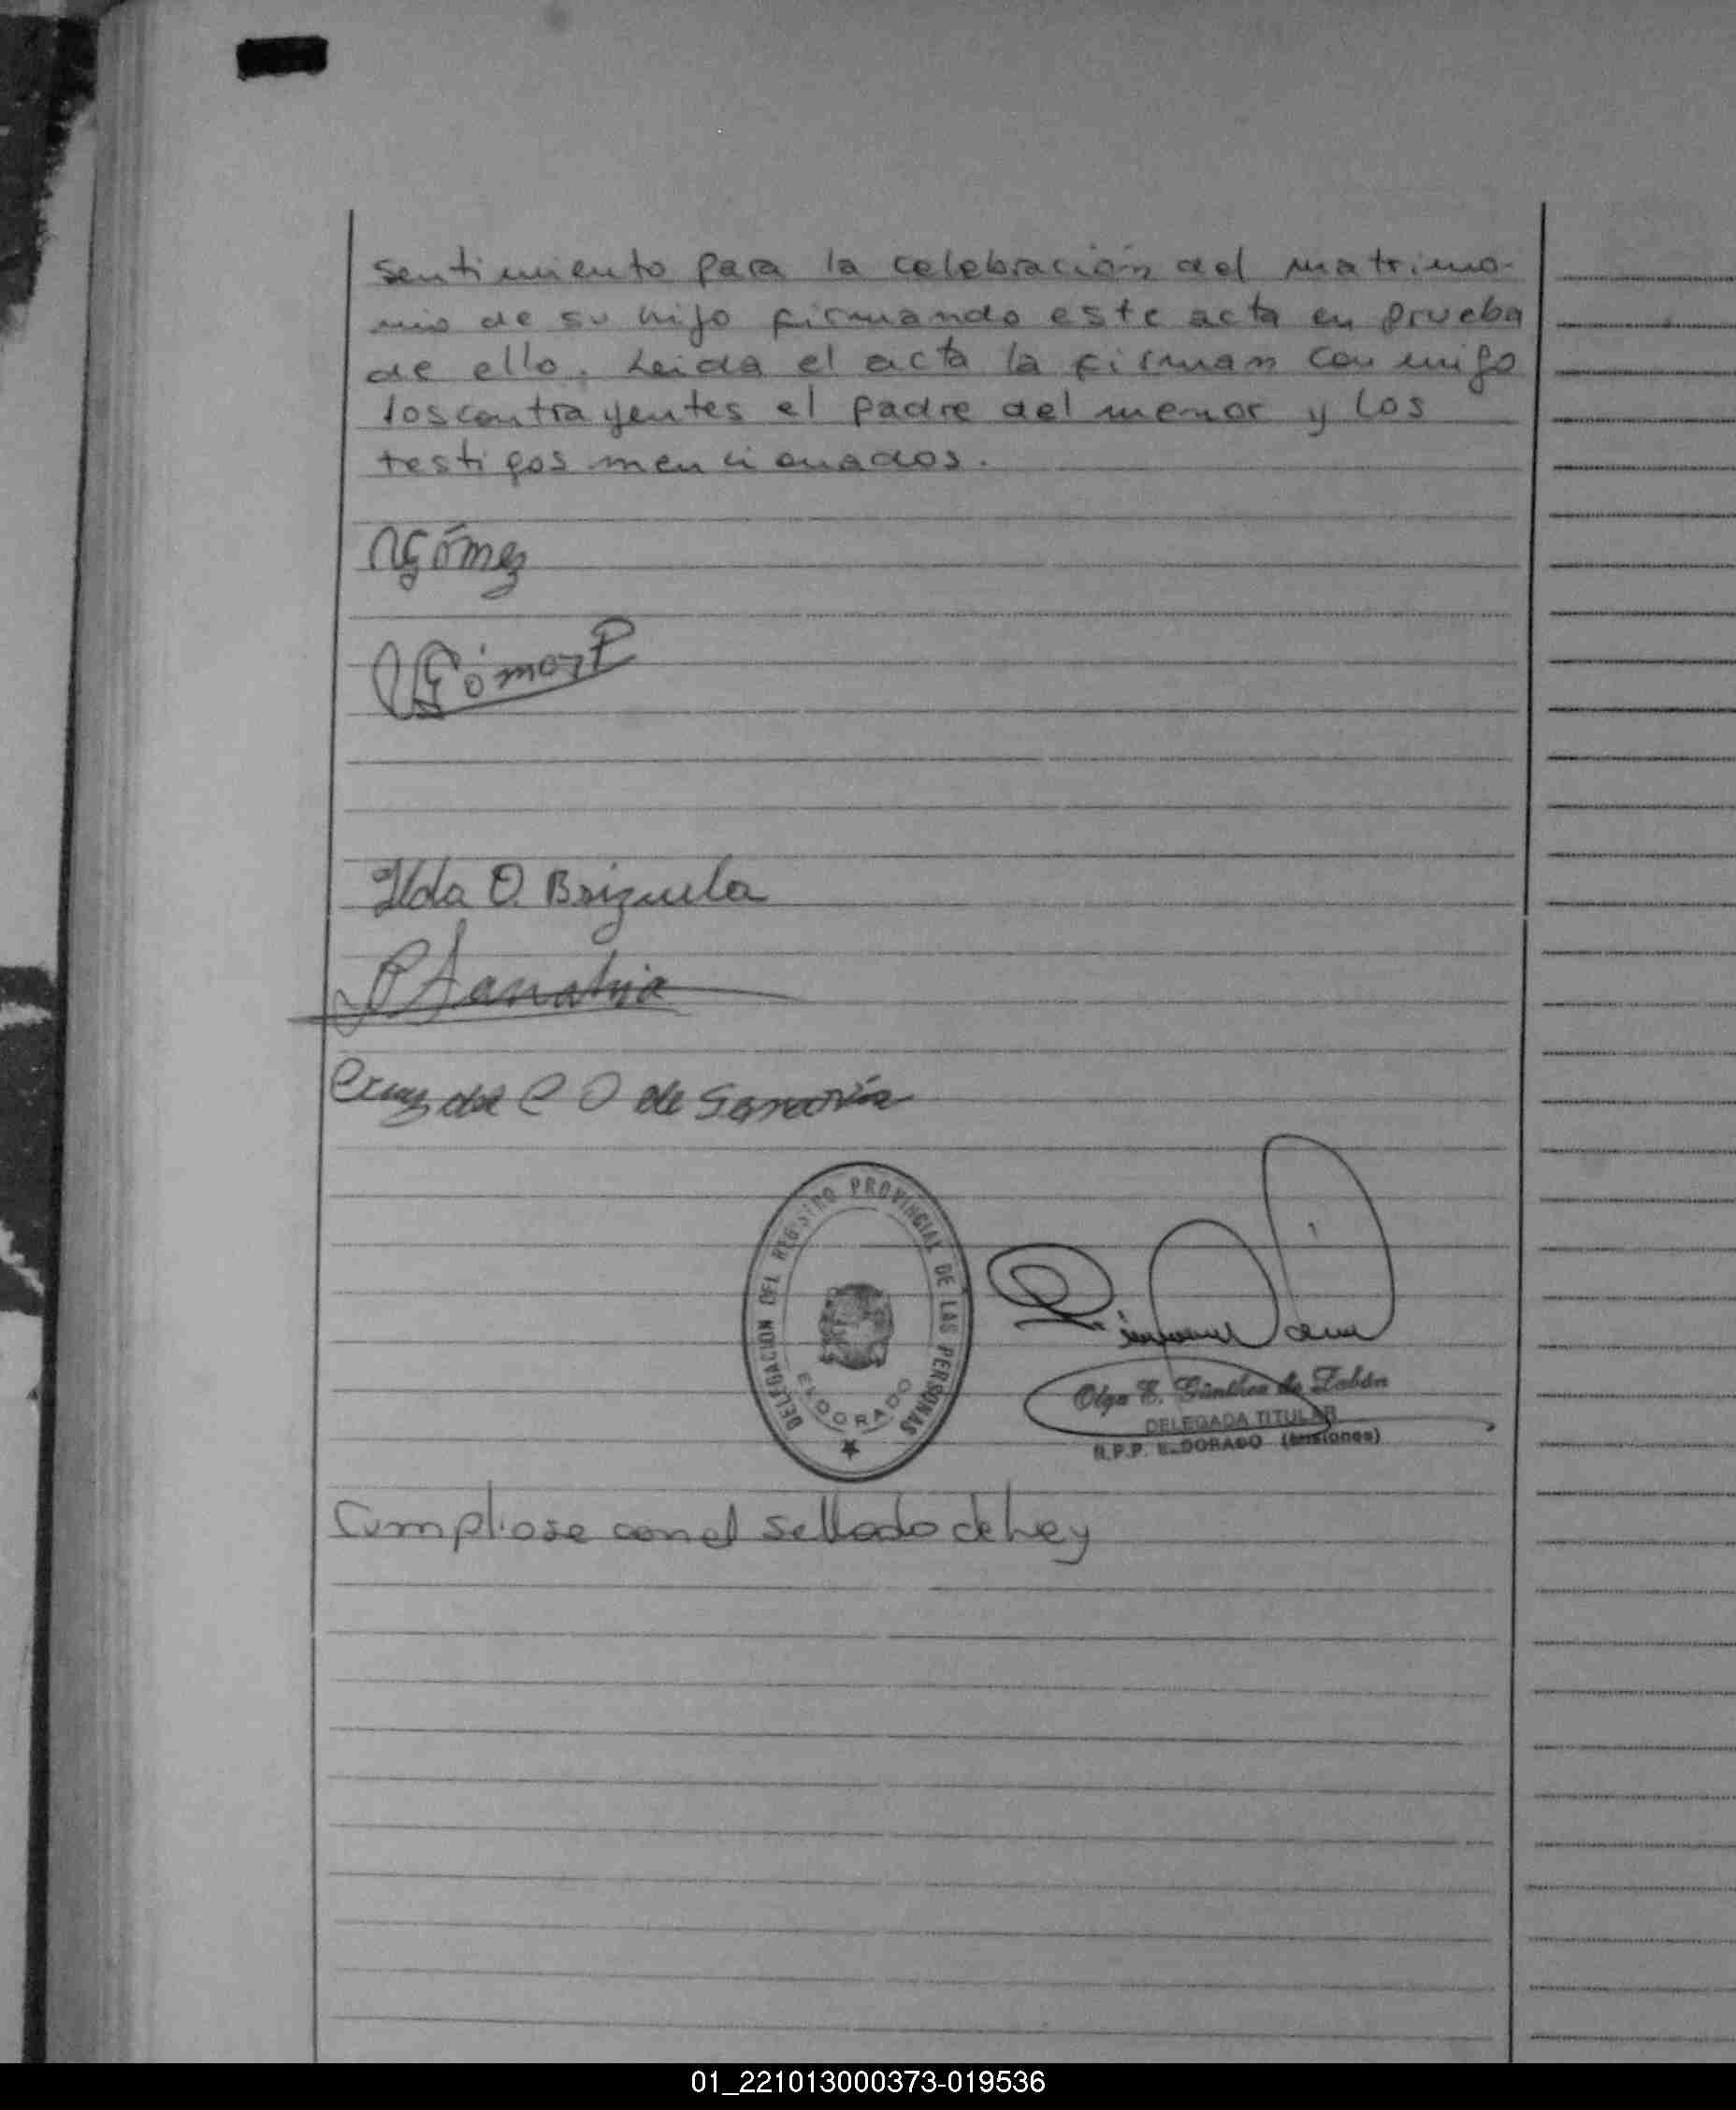 sentimiento para la celebración del matrimo-
nio de su hijo firmando este acta en prueba
de ello. Leida el acta la firman conmigo
los contrayentes el padre del menor y los
testigos mencionados.
Gómez
Gómez
Ilda O. Brizuela
P Sanabria
Cruz del C O de Sanabria
DELEGACION DEL REGISTRO PROVINCIAL DE LAS PERSONAS
ELDORADO
Olga E. Günther de Zabán
DELEGADA TITULAR
R.P.P. ELDORADO (Misiones)
Cumpliose con el sellado de Ley
01_221013000373-019536